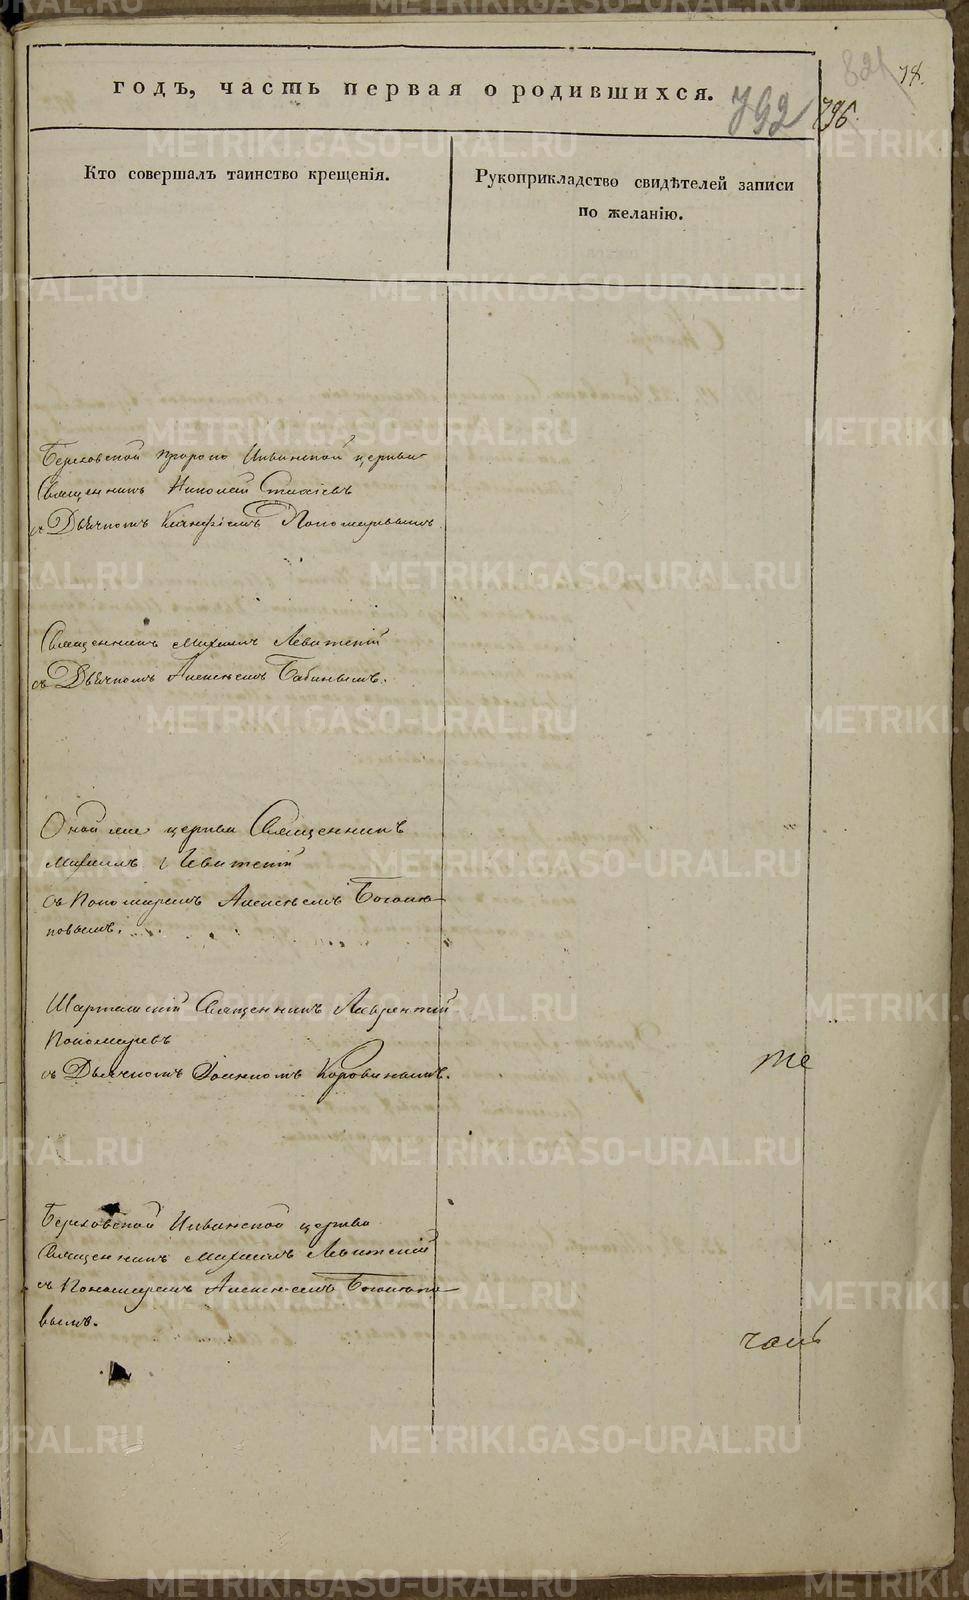 годъ, часть первая о родившихся.
792
796.
821
78.
Кто совершалъ таинство крещенія.
Рукоприкладство свидѣтелей записи
по желанію.
Березовской Пророко Ильинской церкви
Священникъ Николай Стахіевъ
съ Дьячкомъ Пономаревымъ
Священникъ Михаилъ Левитскій
съ Дьячкомъ Алексѣемъ Бабинымъ.
Оной же церкви Священникъ
Михаилъ Левитскій
съ Пономаремъ Алексѣемъ Боголю-
повымъ.
Шарташскій Священникъ Лаврентій
Пономаревъ
съ Дьячкомъ Іоанномъ Коровинымъ.
те
Березовской Ильинской церкви
Священникъ Михаилъ Левитскій
съ Пономаремъ Алексѣемъ Боголюпо-
вымъ.
METRIKI.GASO-URAL.RU